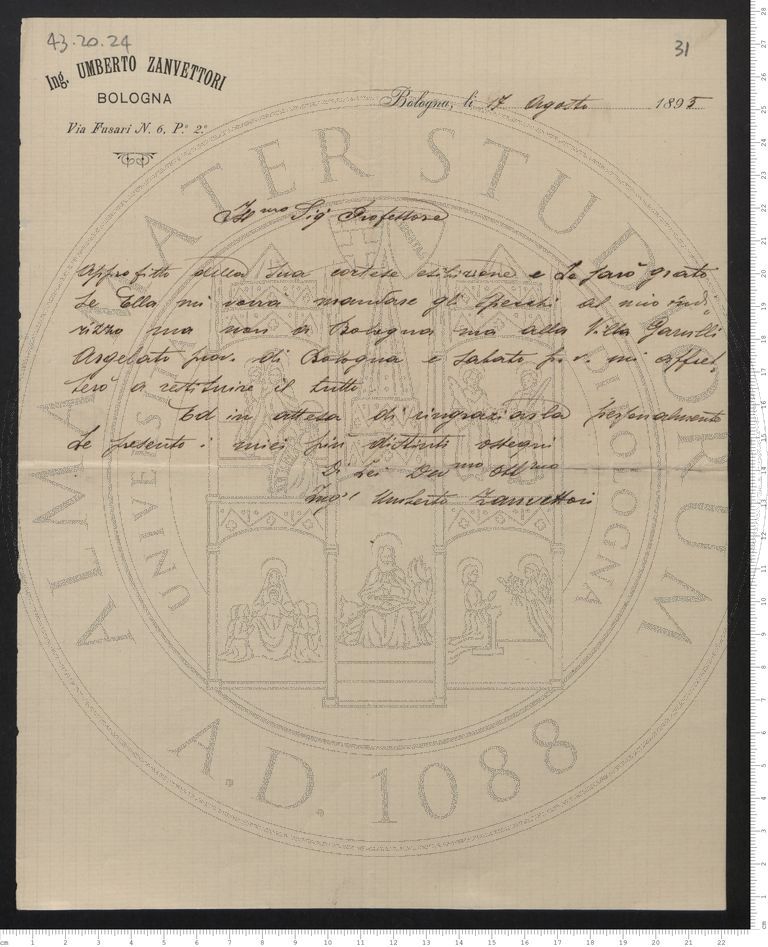 43.20.24
31
Ing. UMBERTO ZANVETTORI
BOLOGNA
Via Fusari N. 6. P.º 2.º
Bologna, li 17 Agosto 1895
Ill.mo Sig Professore
Approfitto della sua cortese esibizione e Le sarò grato
se Ella mi vorrà mandare gli specchi al mio indi
rizzo ma non a Bologna ma alla Villa Garulli
Argelato prov. di Bologna e sabato p. v. mi affret
terò a restituire il tutto
Ed in attesa di ringraziarla personalmente
Le presento i miei più distinti ossequi
Di Lei Dev.mo Obb.mo
Ing.r Umberto Zanvettori
ALMA MATER STUDIORUM
UNIVERSITÀ DI BOLOGNA
A.D. 1088